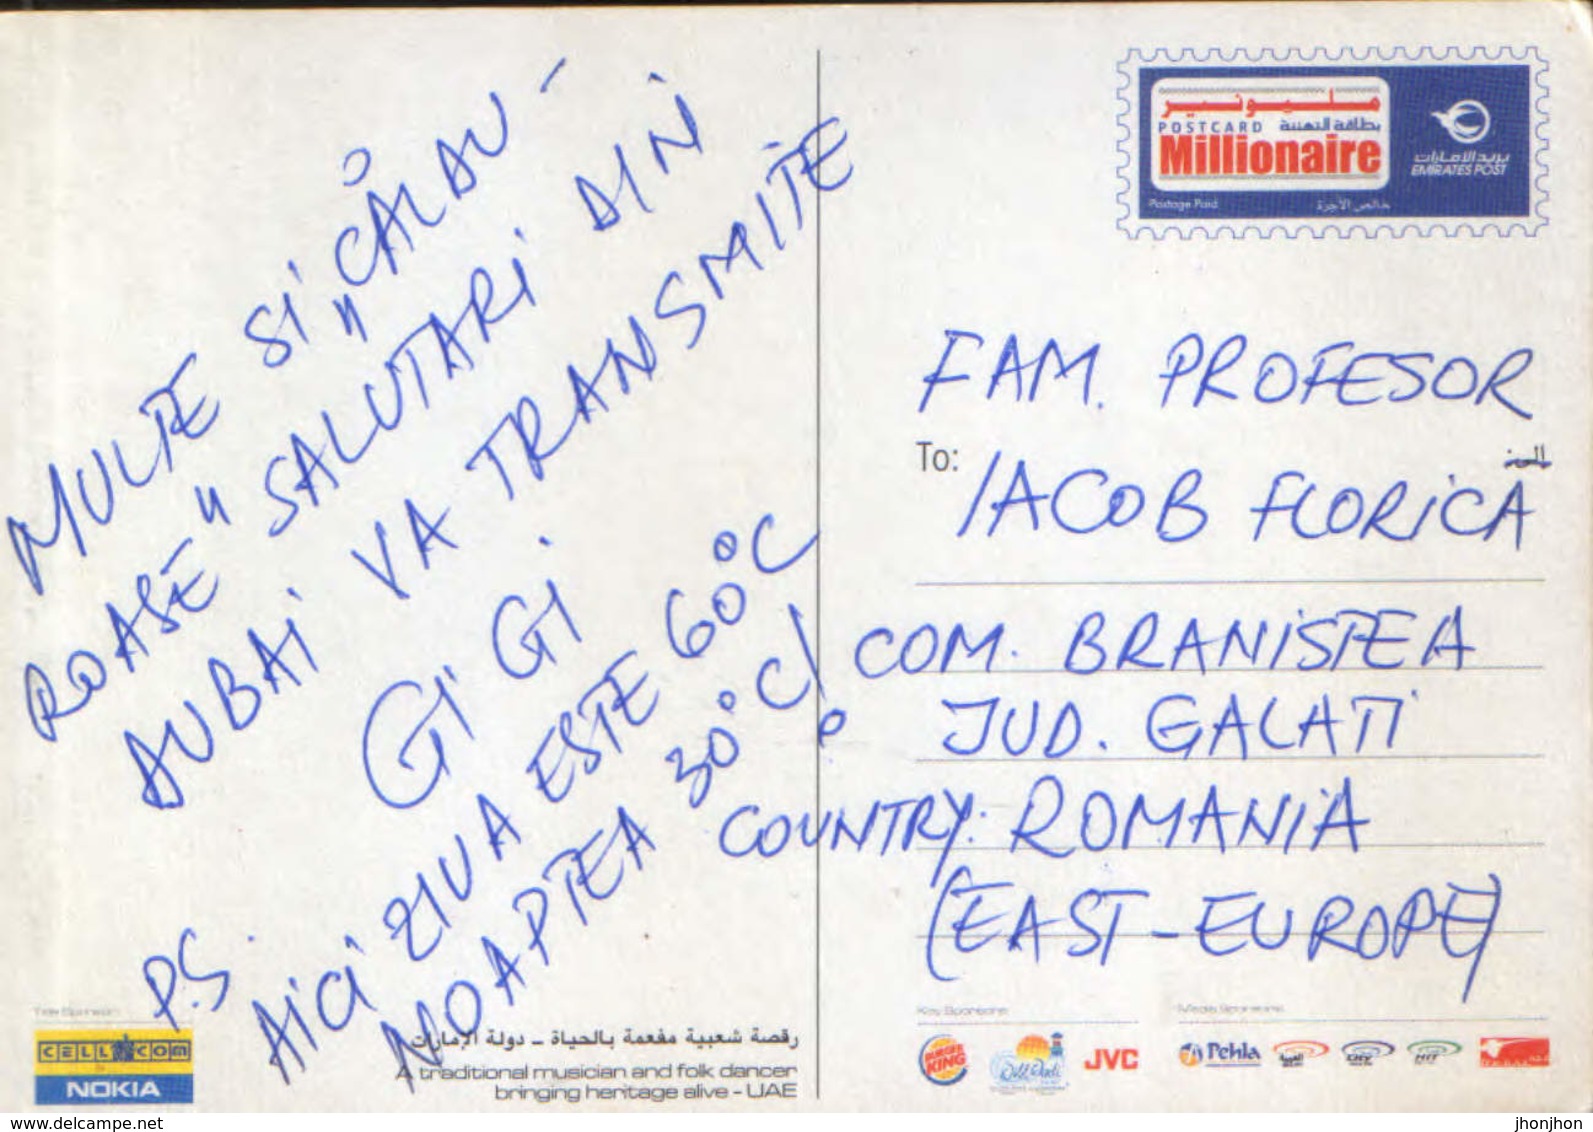 MULTE SI „CĂLDU-
ROASE" SALUTARI DIN
DUBAI VA TRANSMITE
GIGI
P.S. AICI ZIUA ESTE 60°C
NOAPTEA 30°C!
مليونير
POSTCARD بطاقة التهنئة
Millionaire
Postage Paid خالص الأجرة
بريد الإمارات
EMIRATES POST
FAM. PROFESOR
To: IACOB FLORICA
COM. BRANISTEA
JUD. GALATI
COUNTRY: ROMANIA
(EAST-EUROPE)
Title Sponsor
CELLCOM
NOKIA
رقصة شعبية مفعمة بالحياة - دولة الإمارات
A traditional musician and folk dancer
bringing heritage alive - UAE
Key Sponsors
BURGER KING
Wild Wadi
JVC
Media Sponsors
Pehla
delcampe.net
jhonjhon